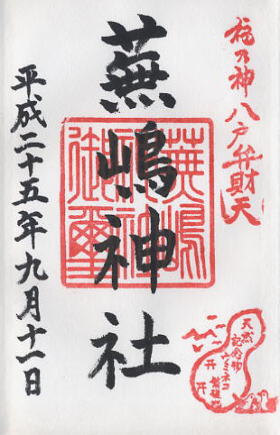 福乃神 八戸弁財天
蕪嶋神社
蕪嶋
神社
御璽
平成二十五年九月十一日
天然
記念物
ウミネコ
繁殖地